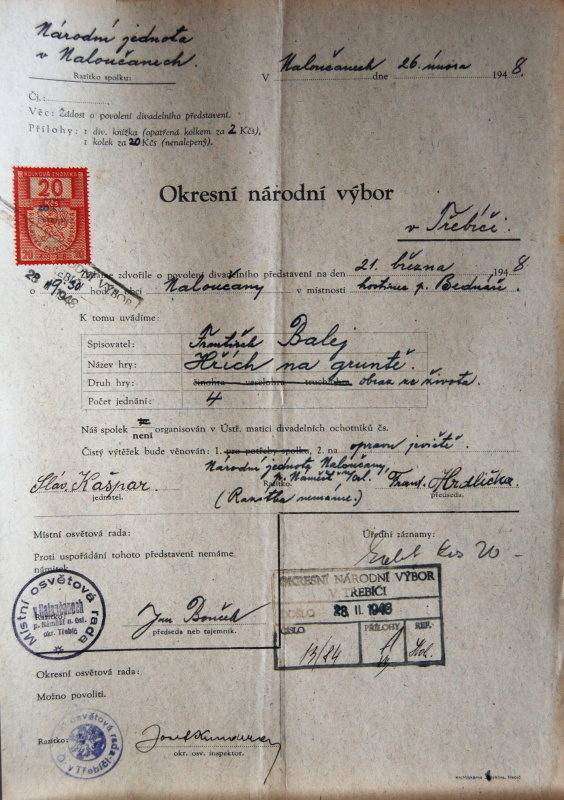 Národní jednota
v Naloučanech.
Razítko spolku:
V Naloučanech dne 26. února 1948.
Čj.:
Věc: Žádost o povolení divadelního představení.
Přílohy: 1 div. knížka (opatřená kolkem za 2 Kčs),
1 kolek za 20 Kčs (nenalepený).
KOLKOVÁ ZNÁMKA
20
KČS
20 20
Okresní národní výbor
v Třebíči.
28 II 1948
VÝBOR
zdvořile o povolení divadelního představení na den 21. března 1948
o 19:30 hod. obci Naloučany v místnosti hostince p. Bednáře.
K tomu uvádíme:
Spisovatel: František Balej
Název hry: Hřích na gruntě.
Druh hry: činohra – veselohra – truchlohra obraz ze života.
Počet jednání: 4
Náš spolek je
není organisován v Ústř. matici divadelních ochotníků čs.
Čistý výtěžek bude věnován: 1. pro potřeby spolku, 2. na opravu jeviště.
Národní jednota Naloučany,
p. Náměšť n/Osl.
Sláv. Kašpar Razítko. Frant. Hrdlička
jednatel. (Razítka nemáme.) předseda.
Místní osvětová rada:
Úřední záznamy:
Proti uspořádání tohoto představení nemáme
námitek.
Kčs 20 –
OKRESNÍ NÁRODNÍ VÝBOR
V TŘEBÍČI
DOŠLO 28. II. 1948
ČÍSLO PŘÍLOHY REF.
13/84
Místní osvětová rada
v Naloučanech
p. Náměšť n. Osl.
okr. Třebíč
Jan Bouček
předseda neb tajemník.
Okresní osvětová rada:
Možno povoliti.
Razítko:
osvětová rada
v Třebíči
Josef
okr. osv. inspektor.